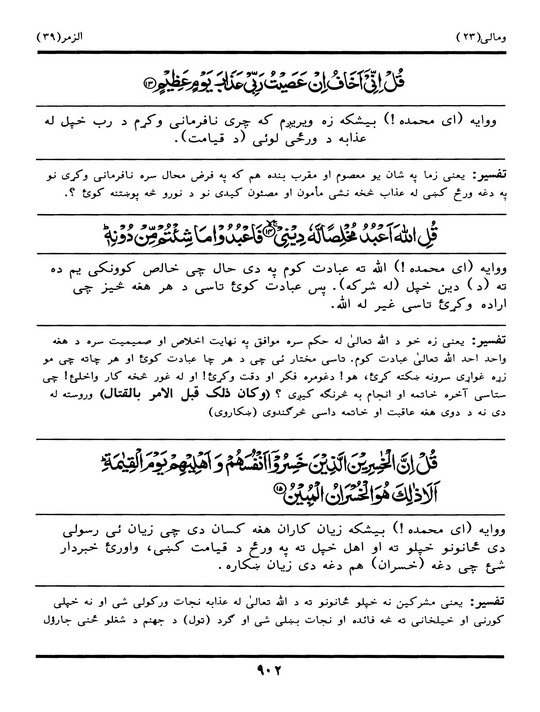 ومالی(۲۳)
الزمر(۳۹)
قُلْ اِنِّیْٓ اَخَافُ اِنْ عَصَیْتُ رَبِّیْ عَذَابَ یَوْمٍ عَظِیْمٍ ﴿۱۳﴾
ووايه (ای محمده !) بېشکه زه وېرېږم که چری نافرمانی وکړم د رب خپل له
عذابه د ورځی لوئی (د قیامت).
تفسير: یعنی زما په شان یو معصوم او مقرب بنده هم که په فرض محال سره نافرمانی وکړی نو
په دغه ورځ کښی له عذاب څخه نشی مأمون او مصئون کیدی نو د نورو څه پوښتنه کوئ ؟.
قُلِ اللّٰهَ اَعْبُدُ مُخْلِصًا لَّهٗ دِیْنِیْ ﴿۱۴﴾ فَاعْبُدُوْا مَا شِئْتُمْ مِّنْ دُوْنِهٖ
ووايه (ای محمده !) الله ته عبادت کوم په دی حال چی خالص کوونکی یم ده
ته (د) دین خپل (له شرکه). پس عبادت کوئ تاسی د هر هغه څیز چی
اراده وکړئ تاسی غیر له الله.
تفسير: یعنی زه خو د الله تعالیٰ له حکم سره موافق په نهایت اخلاص او صمیمیت سره د هغه
واحد احد الله تعالیٰ عبادت کوم. تاسی مختار ئی چی د هر چا عبادت کوئ او هر چاته چی مو
زړه غواړی سرونه ښکته کړئ، هو! دغومره فکر او دقت وکړئ! او له غور څخه کار واخلئ! چی
ستاسی آخره خاتمه او انجام به څرنګه کیږی ؟ (وکان ذلک قبل الامر بالقتال) وروسته له
دی نه د دوی هغه عاقبت او خاتمه داسی څرګندوی (ښکاروی)
قُلْ اِنَّ الْخٰسِرِیْنَ الَّذِیْنَ خَسِرُوْٓا اَنْفُسَهُمْ وَ اَهْلِیْهِمْ یَوْمَ الْقِیٰمَةِ
اَلَا ذٰلِكَ هُوَ الْخُسْرَانُ الْمُبِیْنُ ﴿۱۵﴾
ووايه (ای محمده !) بېشکه زیان کاران هغه کسان دی چی زیان ئی رسولی
دی ځانونو خپلو ته او اهل خپل ته په ورځ د قیامت کښی، واورئ خبردار
شئ چی دغه (خسران) هم دغه دی زیان ښکاره.
تفسير: یعنی مشرکین نه خپلو ځانونو ته د الله تعالیٰ له عذابه نجات ورکولی شی او نه خپلی
کورنی او خپلخانی ته څه فائده او نجات بښلی شی او ګرد (تول) د جهنم د شغلو ځنی جاروؤل
۹۰۲